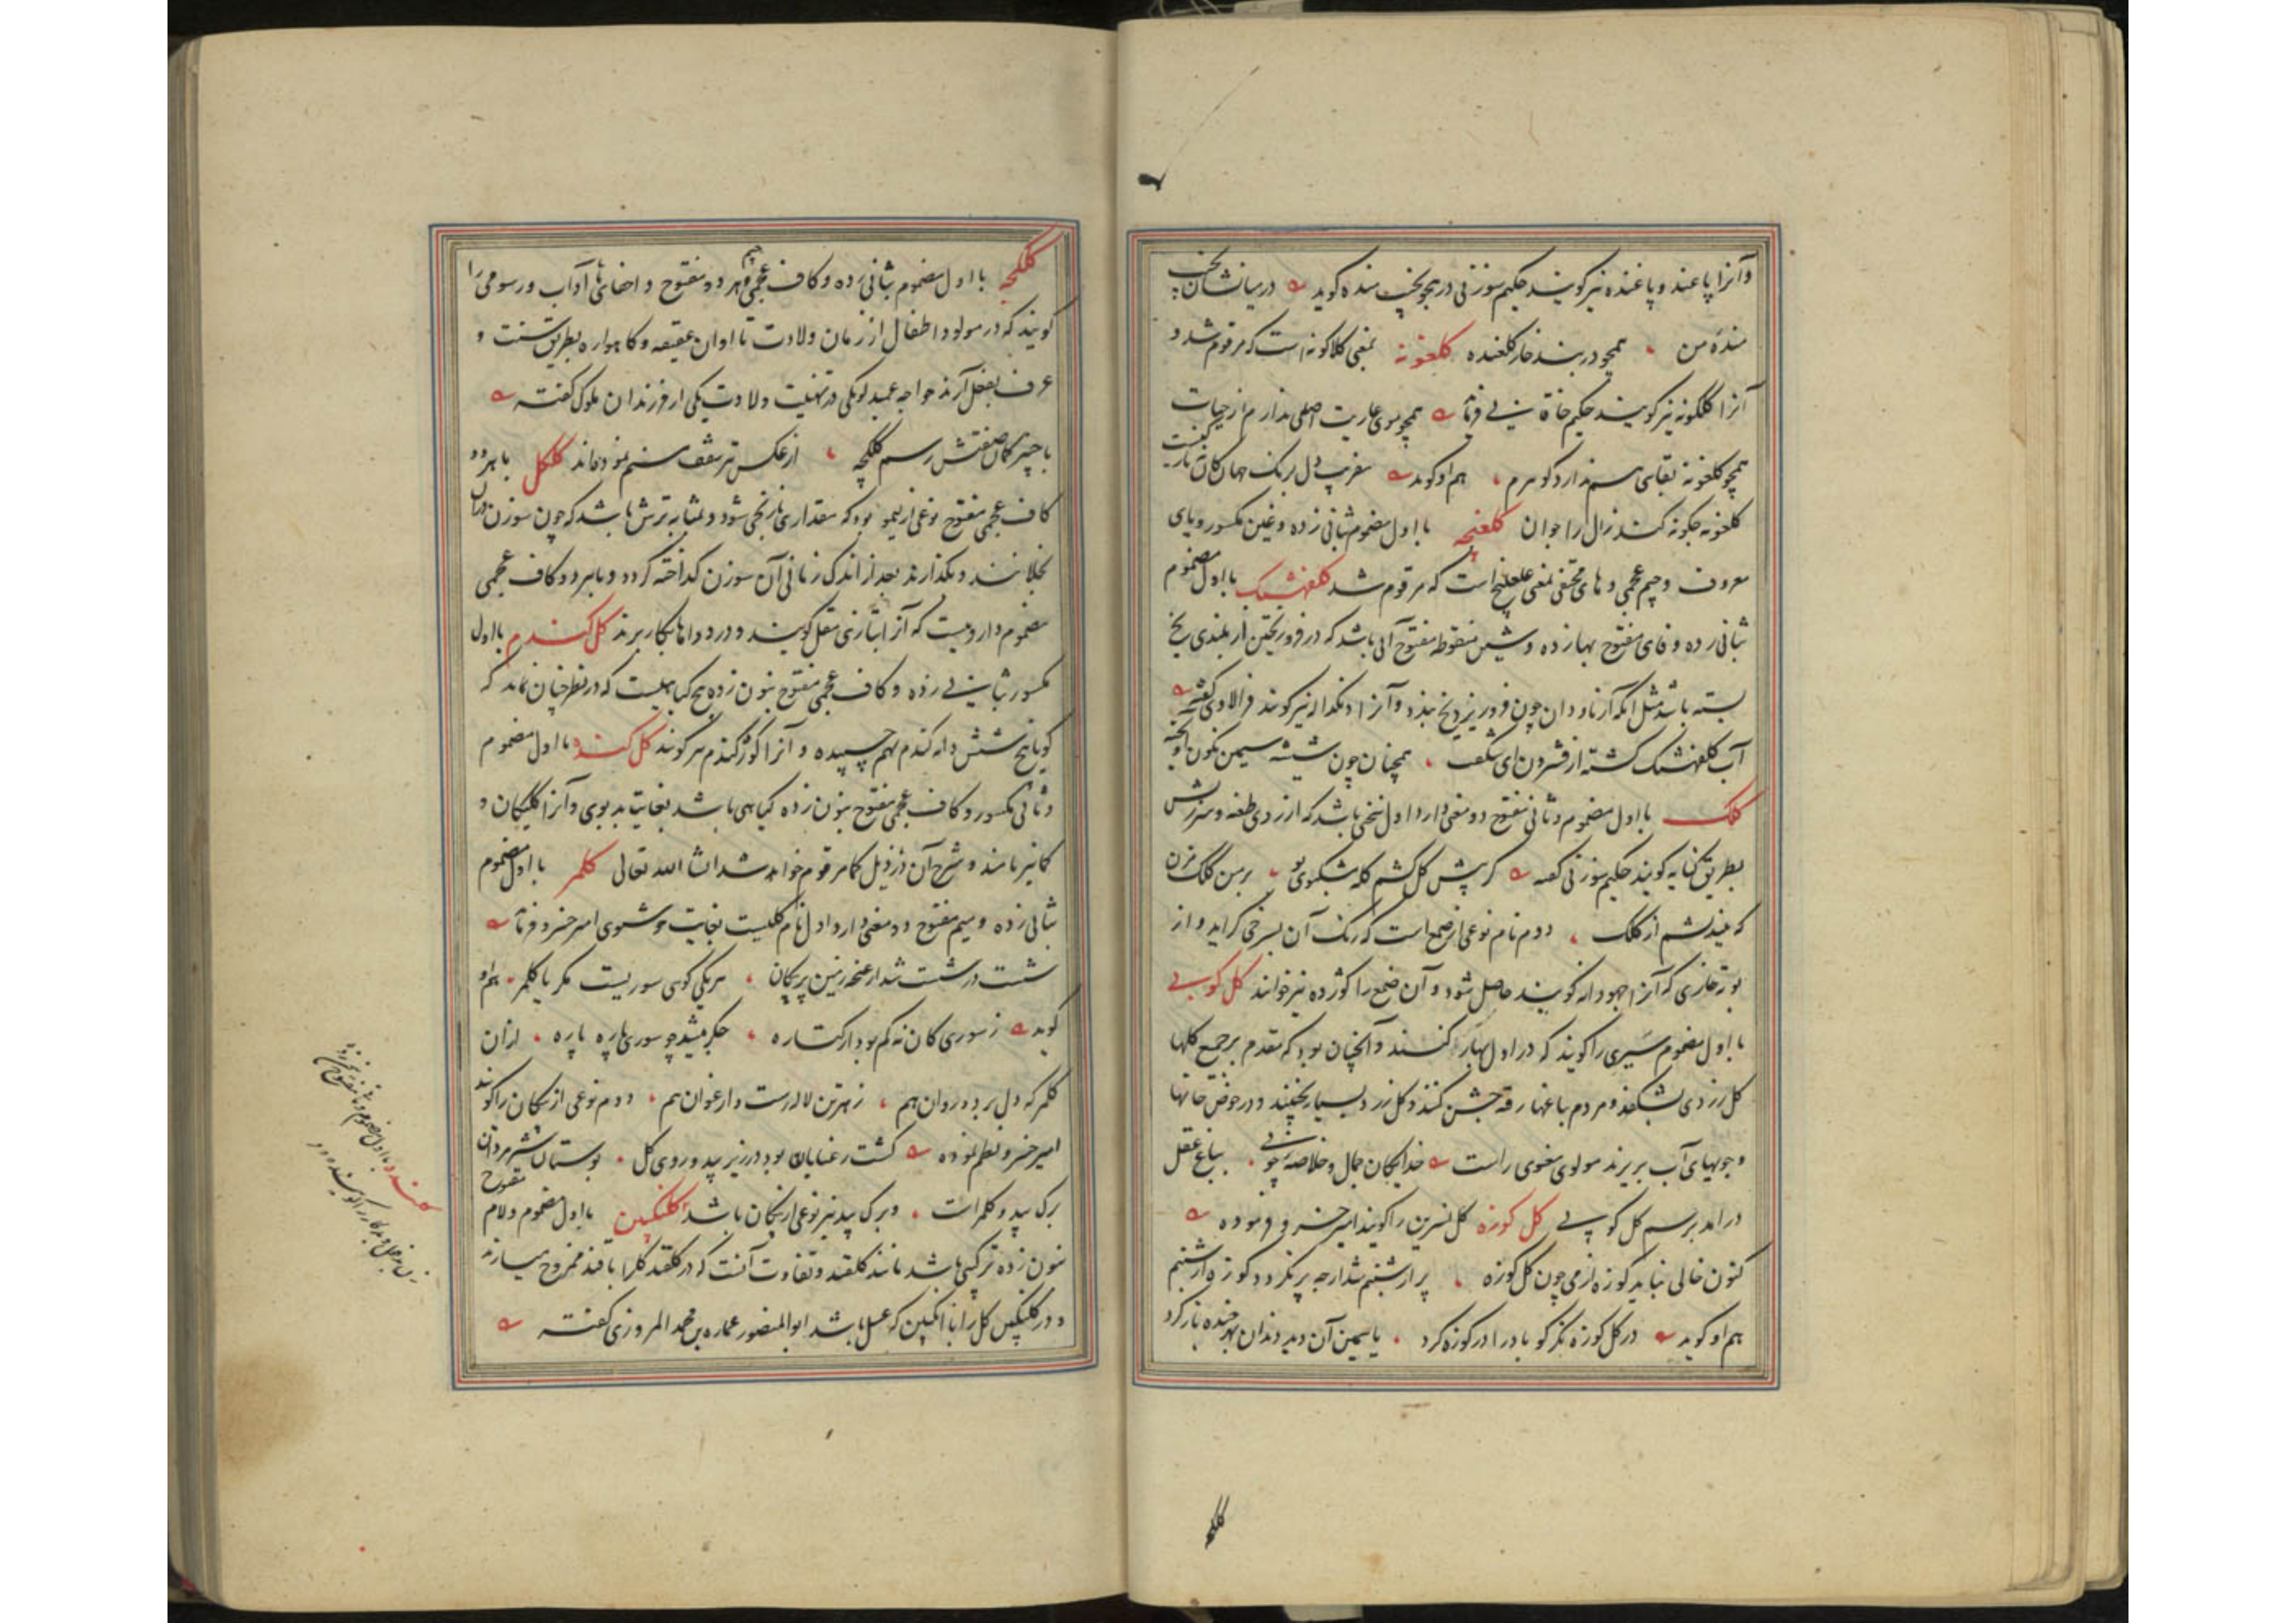 وآنرا پاغند و پاغنده نیز گویند حکیم سوزنی در هجو نخشب منده گوید در میانشان بخشب
منده من همچو در پنبه خار کلغنده کلغونه بمعنی کلاکونه است که مرقوم شد و
آنرا کلکونه نیز گویند حکیم خاقانی فرماید همچو موی عاریت اصلی ندارم از حیات
همچو کلغونه بقائی هم ندارد گوهرم هم او گوید مفریب دل برنک جهان کان نه تازکیست
کلغونه چکونه کند زال را جوان کلغیچه با اول مضموم بثانی زده و غین مکسور و یای
معروف و جیم عجمی و های مختفی بمعنی غلغلیج است که مرقوم شد کلفهشنک با اول مضموم
بثانی زده و فای مفتوح بهازده و شین منقوطه مفتوح آبی باشد که در فرو ریختن از بلندی یخ
بسته باشد مثل آنکه از ناودان چون فرو ریزد یخ بندد و آنرا دنکداله نیز گویند فرالاوی گفته
آب کلفهشنک کشته از فسردن ای شکفت همچنان چون شیشه سیمین نکون آویخته
کلک با اول مضموم و ثانی مفتوح دو معنی دارد اول سخنی باشد که از روی طعنه و سرزنش
بطریق کنایه گویند حکیم سوزنی گفته کر پیش کل کشم کله شکوی تو بر من کلک مزن
که نیندیشم از کلک دوم نام نوعی از صمغ است که رنک آن بسرخی کراید و از
بوته خاری که آنرا جهودانه گویند حاصل شود و آن صمغ را کوژده نیز خوانند کل کوبی
با اول مضموم سیری را گویند که در اول بهار کنند و آنچنان بود که مقدم بر جمع کلها
کل زردی بشکفد و مردم بباغها رفته جشن کنند و کل زرد بسیار بچینند و در حوض خانها
و جویهای آب بریزند مولوی معنوی راست خدایگان جمال و خلاصه خوبی بباغ عقل
درامد برسم کل کوبی کل کوزه کل نسرین را گویند امیر خسرو فرموده
کنون خالی نباید کوزه از می چون کل کوزه پر از شبنم شد ارچه پر نکردد کوزه از شبنم
هم او گوید در کل کوزه نکر کو باد را در کوزه کرد یاسمین آن دید و دندان بهر خنده باز کرد
کلکچه
کلکچه با اول مضموم بثانی زده و کاف عجمی و جیم هر دو مفتوح و اخفای ها آداب و رسومی را
گویند که در مولود اطفال از زمان ولادت تا اوان عقیقه و کاهواره بطریق سنت و
عرف بفعل آرند خواجه عمید لوبکی در تهنیت ولادت یکی از فرزندان ملوک گفته
رسم کلکچه از عکس نر سقف نموده‌اند کلکل با هر دو
کاف عجمی مفتوح نوعی از لیمو بود که مقدار نارنجی شود و بمثابه ترش باشد که چون سوزن دران
بخلانند و بکذارند بعد از اندک زمانی آن سوزن کداخته کردد و با هر دو کاف عجمی
مضموم داروییست که آنرا بتازی مقل گویند و در دواها بکار برند کل کندم با اول
مکسور بثانی زده و کاف عجمی مفتوح بنون زده بیخ کیاهیست که در نظر چنان نماید که
کویا پنج شش دانه کندم بهم چسپیده و آنرا کوژکندم نیز گویند کل کنده با اول مضموم
و ثانی مکسور و کاف عجمی مفتوح بنون زده کیاهی باشد بغایت بدبوی و آنرا کلیکان و
کمانیر نامند و شرح آن در ذیل کما مرقوم خواهد شد انشا الله تعالی کلمر با اول مضموم
بثانی زده و میم مفتوح دو معنی دارد اول نام کلیست بغایت خوشبوی امیر خسرو فرماید
شست در شست شد از غنچه زرین پیکان هر یکی کوی سوریست مکر یا کلمر هم او
گوید ز سوری کان نه کم بود از کتاره جکر میشد چو سوری پاره پاره ازان
کلمر که دل برد و روان هم ز هر تن لاله رست و ارغوان هم دوم نوعی از پیکان را کویند
امیر خسرو نظم نموده کشت رعنایان بود در زیر بید و روی کل بوستان شیر مردان
برک بید و کلمر است و برک بید نیز نوعی از پیکان باشد کلنکبین با اول مضموم و لام مفتوح
بنون زده ترکیبی باشد مانند کلقند و تفاوت آنست که در کلقند کل را با قند ممزوج میسازند
و در کلنکبین کل را با انکبین که عسل باشد ابوالمنصور عماره بن محمد المروزی گفته